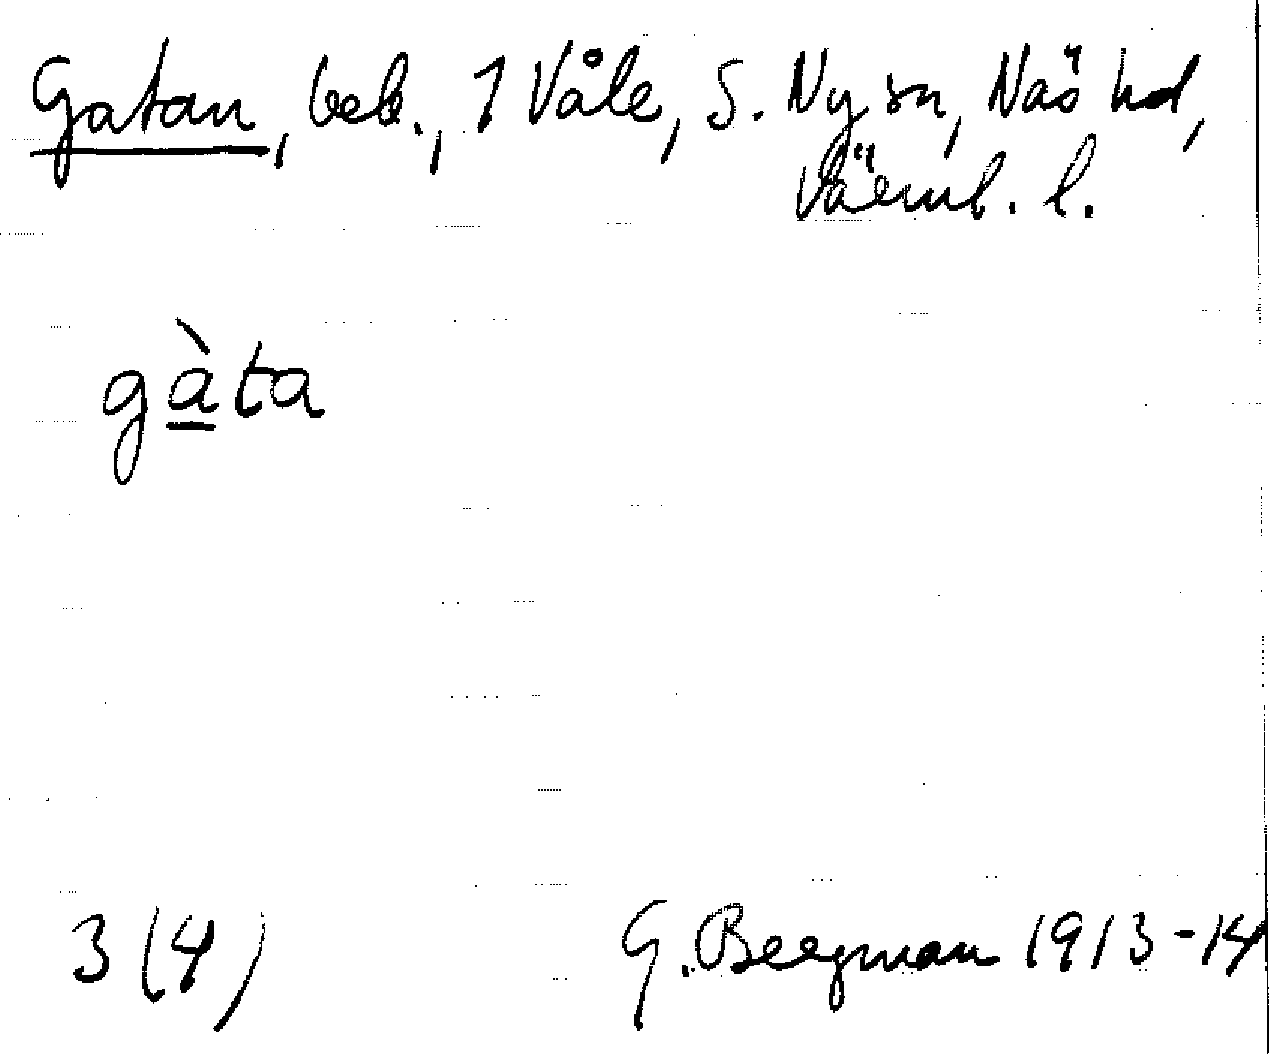 Gatan, beb., 1 Våle, S. Ny sn, Näs hd,
Värml. l.
gàta
3 (4) G. Bergman 1913-14